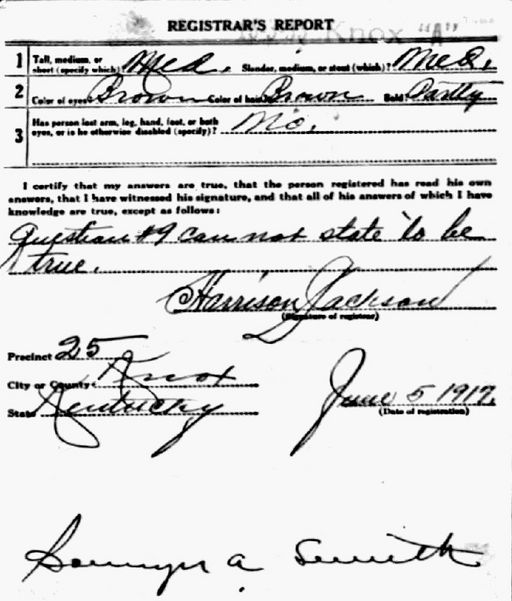 REGISTRAR'S REPORT
Knox "A"
1 Tall, medium, or short (specify which)? Med. Slender, medium, or stout (which)? Med.
2 Color of eyes? Brown Color of hair? Brown Bald? Partly
3 Has person lost arm, leg, hand, foot, or both eyes, or is he otherwise disabled (specify)? No.
I certify that my answers are true, that the person registered has read his own
answers, that I have witnessed his signature, and that all of his answers of which I have
knowledge are true, except as follows:
Question #9 can not state to be
true.
Harrison Jackson
(Signature of registrar)
Precinct 25
City or County Knox
State Kentucky
June 5 1917.
(Date of registration)
A Smith